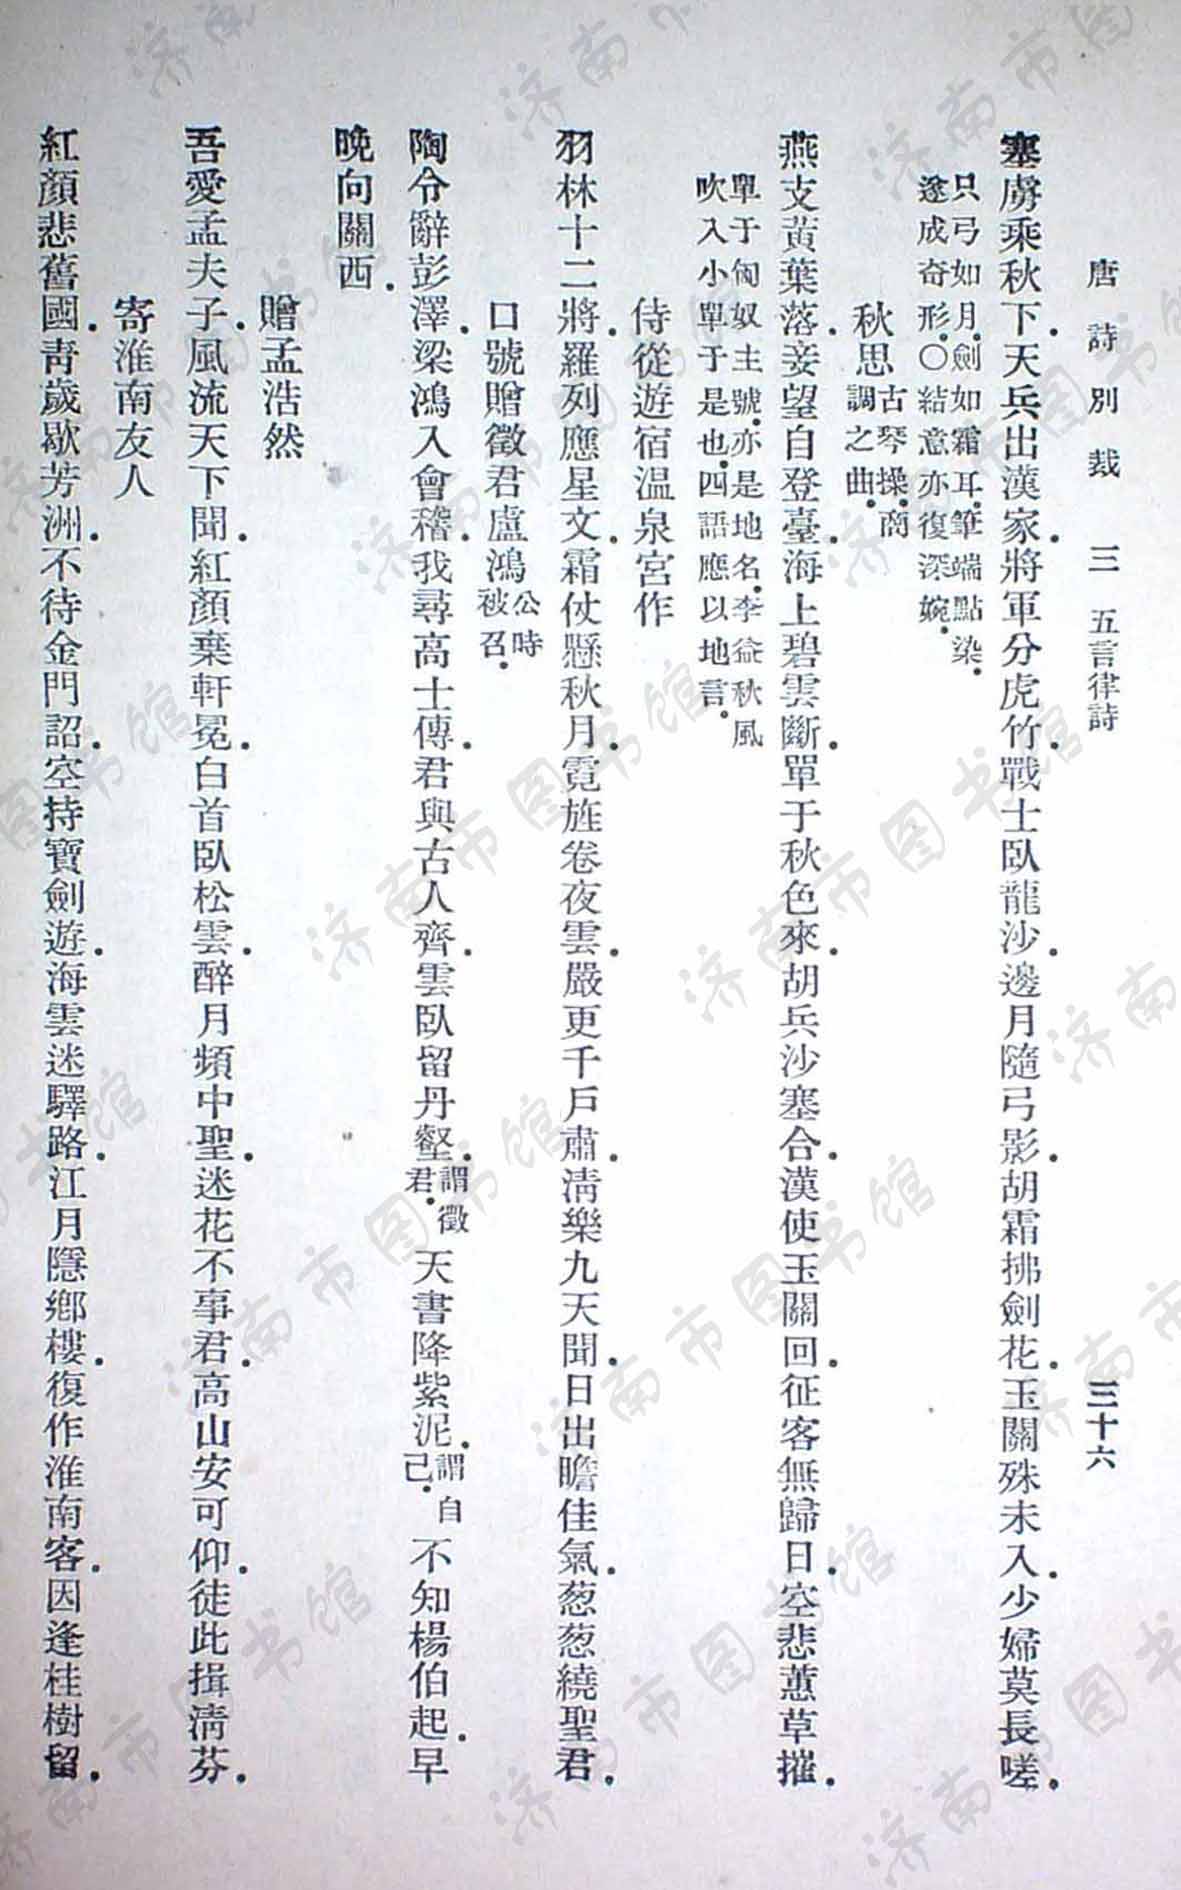 唐詩別裁 三 五言律詩 三十六
塞虜乘秋下．天兵出漢家．將軍分虎竹．戰士臥龍沙．邊月隨弓影．胡霜拂劍花．玉關殊未入．少婦莫長嗟．
只弓如月．劍如霜耳．筆端點染．
遂成奇形．○結意亦復深婉．
秋思
古琴操．商
調之曲．
燕支黃葉落．妾望自登臺．海上碧雲斷．單于秋色來．胡兵沙塞合．漢使玉關回．征客無歸日．空悲蕙草摧．
單于匈奴主號．亦是地名．李益秋風
吹入小單于是也．四語應以地言．
侍從遊宿溫泉宮作
羽林十二將．羅列應星文．霜仗懸秋月．霓旌卷夜雲．嚴更千戶肅．淸樂九天聞．日出瞻佳氣．葱葱繞聖君．
口號贈徵君盧鴻
公時
被召．
陶令辭彭澤．梁鴻入會稽．我尋高士傳．君與古人齊．雲臥留丹壑．
謂徵
君．
天書降紫泥．
謂自
己．
不知楊伯起．早
晚向關西．
贈孟浩然
吾愛孟夫子．風流天下聞．紅顏棄軒冕．白首臥松雲．醉月頻中聖．迷花不事君．高山安可仰．徒此揖淸芬．
寄淮南友人
紅顏悲舊國．靑歲歇芳洲．不待金門詔．空持寶劍遊．海雲迷驛路．江月隱鄉樓．復作淮南客．因逢桂樹留．
济南市图书馆